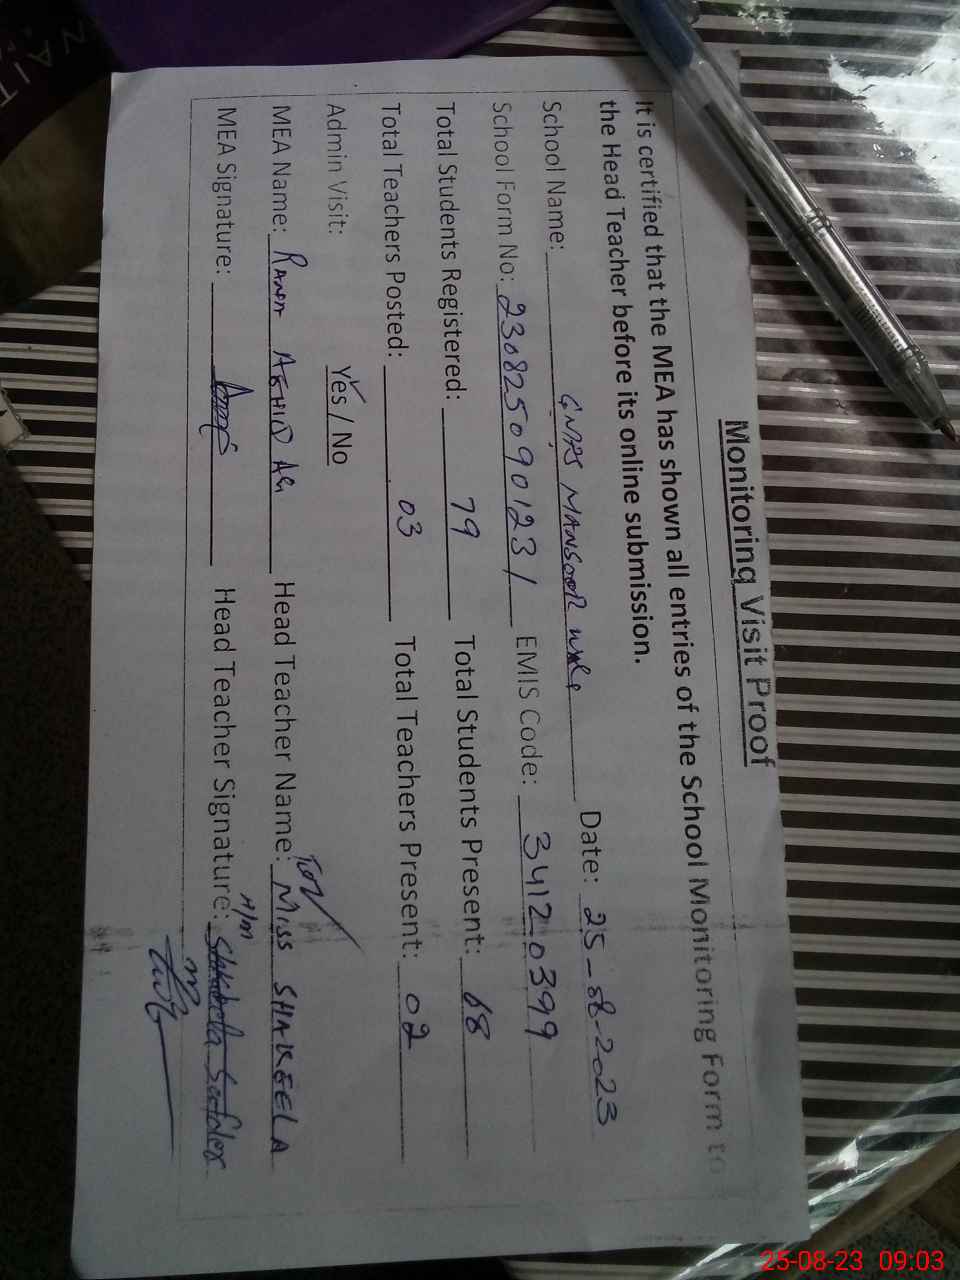 Monitoring Visit Proof
It is certified that the MEA has shown all entries of the School Monitoring Form to
the Head Teacher before its online submission.
School Name: MANSOOR Date: 25-08-2023
School Form No: 2308250901231 EMIS Code: 34120399
Total Students Registered: 79 Total Students Present: 68
Total Teachers Posted: 03 Total Teachers Present: 02
Admin Visit: Yes / No
MEA Name: Head Teacher Name: Miss SHAKEELA
MEA Signature: Head Teacher Signature: H/M
25-08-23 09:03